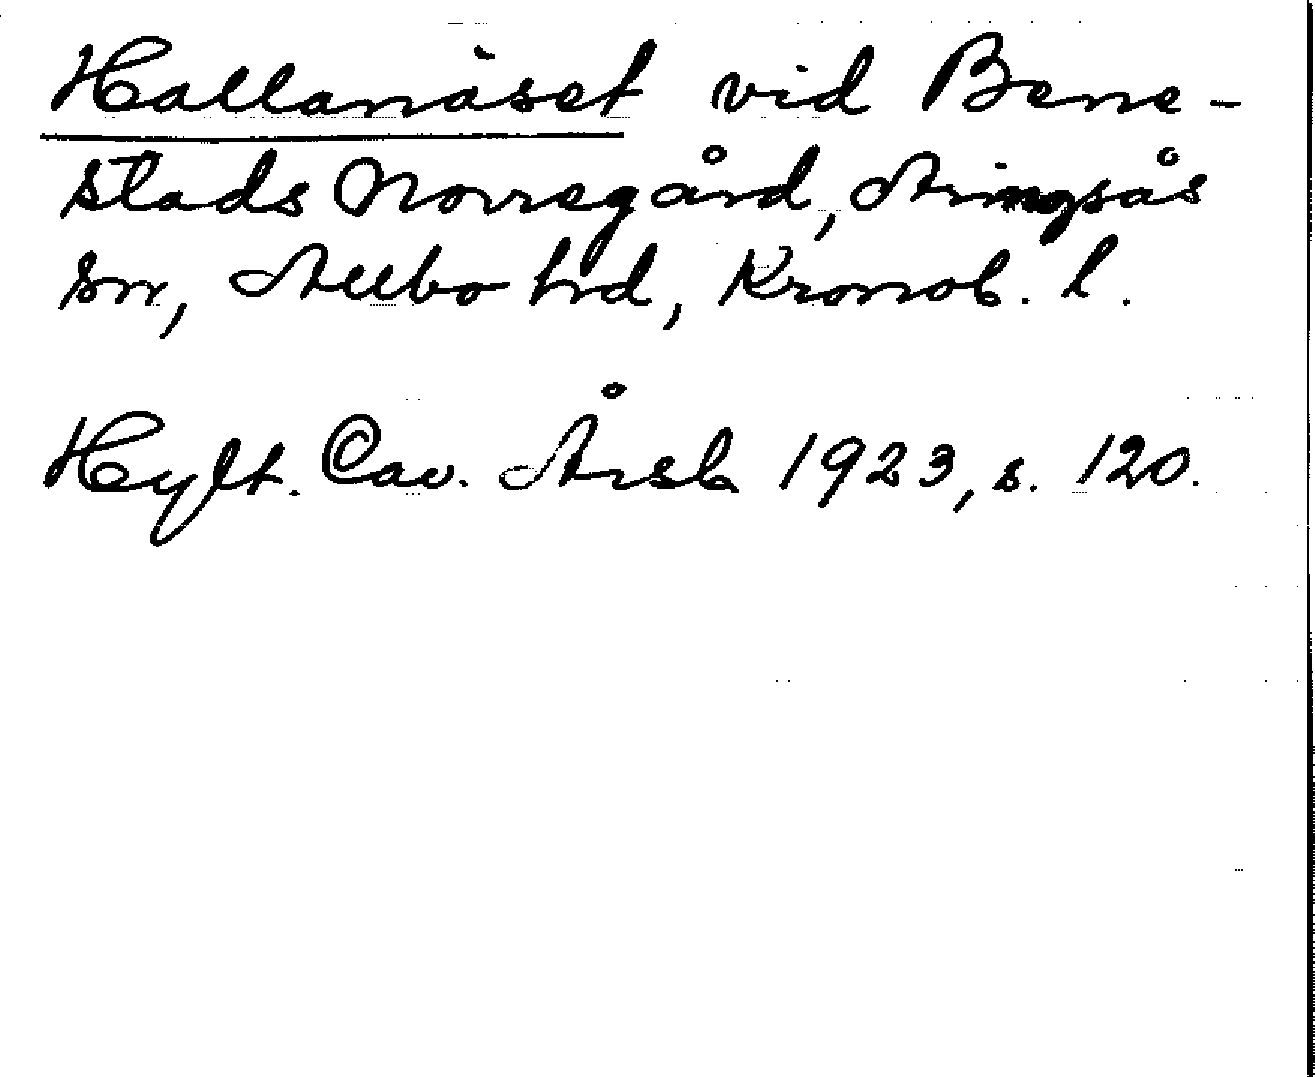 Hallanäset vid Bene-
stads Norregård, Aringsås
sn, Allbo hd, Kronob. l.
Hylt. Cav. Årsb 1923, s. 120.